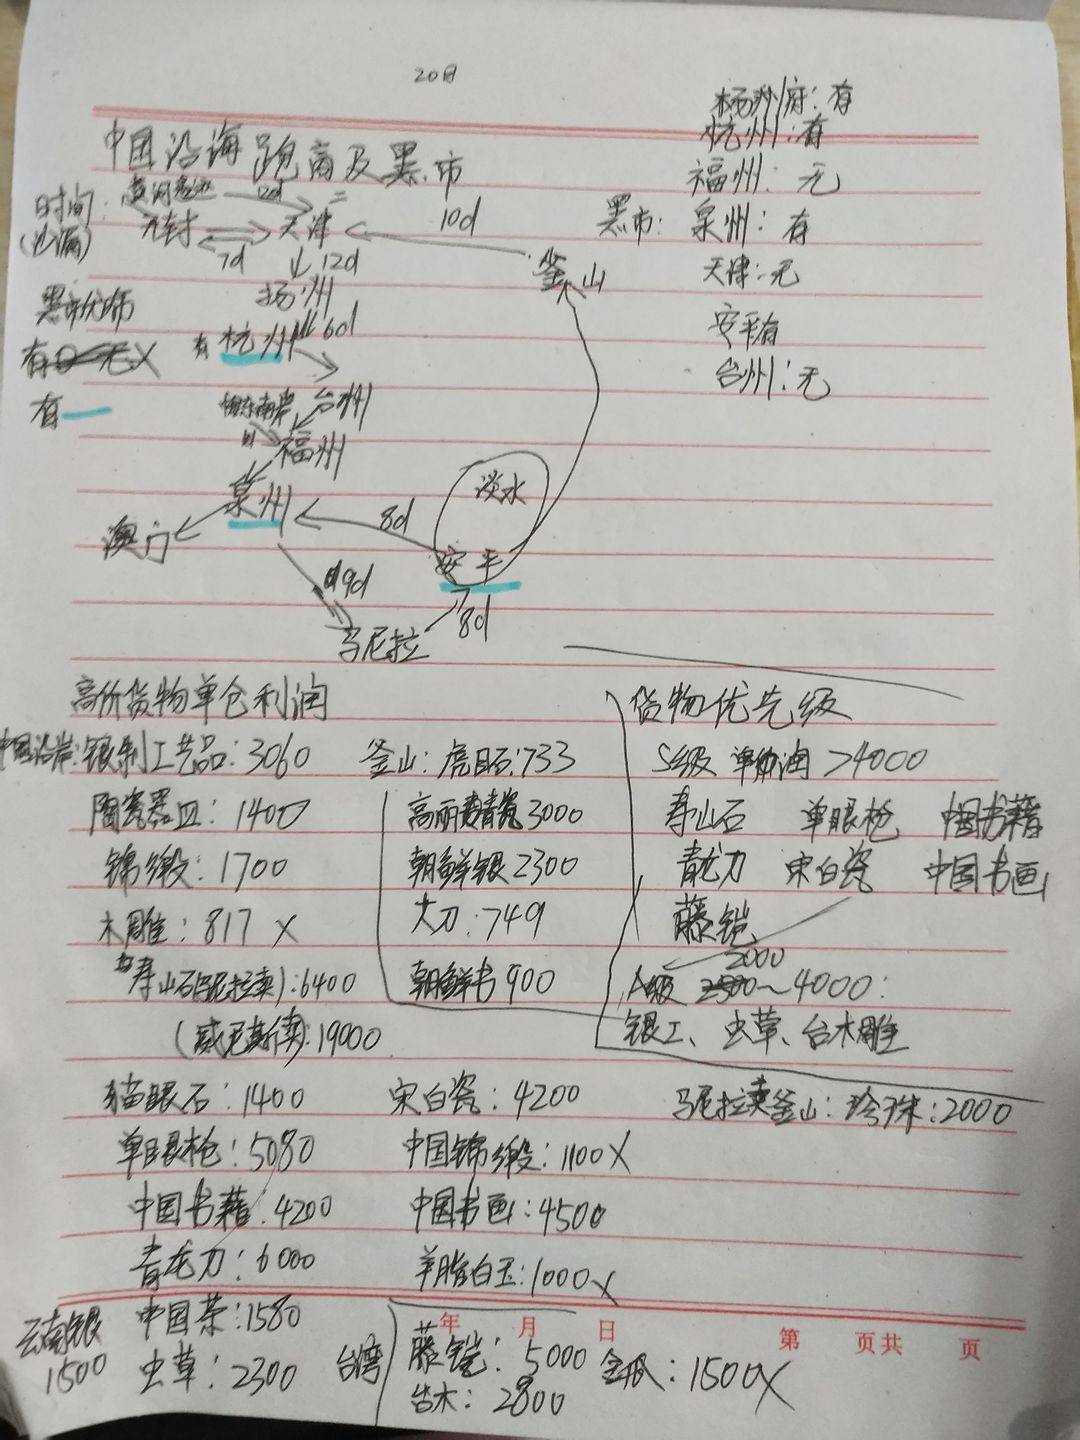 20日
杨州府：有
杭州：有
中国沿海跑商及黑市
福州：无
时间：
12d
10d
黑市：泉州：有
开封
天津
7d
12d
釜山
天津：无
扬州
黑市优师
安平有
有 杭州 6d
有 无X
台州：无
有
台州
福州
淡水
泉州
8d
澳门
安平
19d
8d
马尼拉
高价货物单仓利润
货物优先级
中国沿岸：银制工艺品：3060
釜山：虎目石：733
S级 单仓利润>4000
陶瓷器皿：1400
高丽青瓷3000
寿山石 单眼枪 中国书籍
锦缎：1700
朝鲜银2300
青龙刀 宋白瓷 中国书画
木雕：817 X
大刀：749
藤铠
2000
寿山石(马尼拉卖)：6400
朝鲜书900
A级 ~4000：
(威尼斯卖)：19000
银工、虫草、台木雕
猫眼石：1400
宋白瓷：4200
马尼拉卖釜山：珍珠：2000
单眼枪：5080
中国锦缎：1100X
中国书籍：4200
中国书画：4500
青龙刀：6000
羊脂白玉：1000X
云南银
1500
中国茶：1580
年 月 日
第 页共 页
虫草：2300
台湾
藤铠：5000
金瓜：1500X
台木：2800